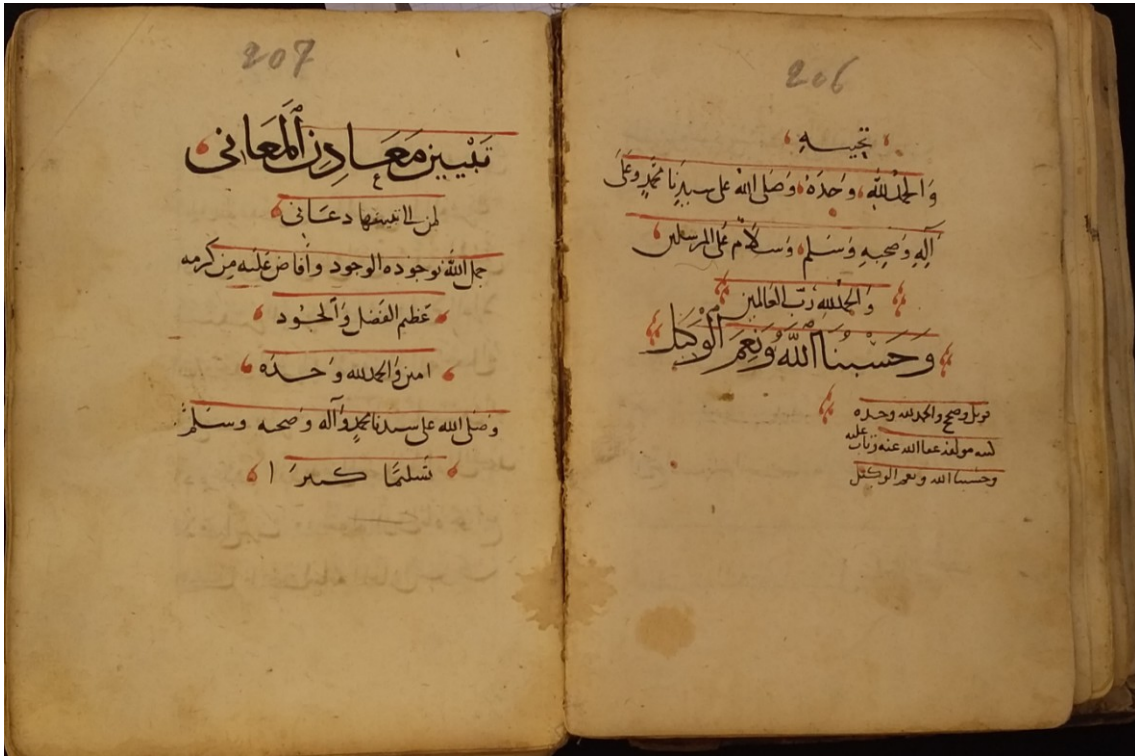 206
تجيبه
والحمد لله وحده وصلى الله على سيدنا محمد وعلى
آله وصحبه وسلم وسلام على المرسلين
والحمد لله رب العالمين
وحسبنا الله ونعم الوكيل
قوبل وصحح والحمد لله وحده
كتبه مولفه عفا الله عنه وتاب عليه
وحسبنا الله ونعم الوكيل
207
تبيين معادن المعاني
لمن الى تبيينها دعاني
جمل الله بوجوده الوجود وأفاض عليه من كرمه
عظيم الفضل والجود
امين والحمد لله وحده
وصلى الله على سيدنا محمد وآله وصحبه وسلم
تسليما كثيرا